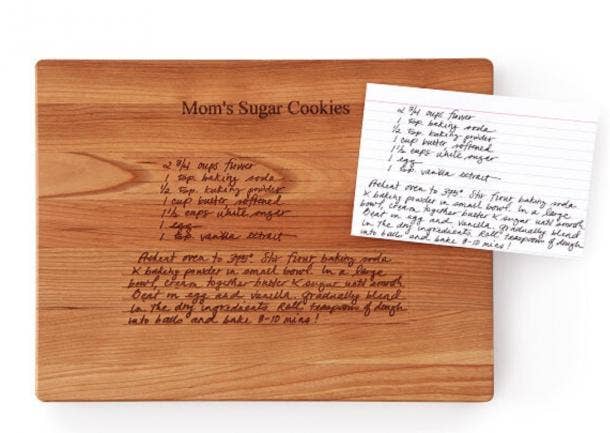 Mom's Sugar Cookies
2 3/4 cups flower
1 tsp baking soda
1/2 tsp baking powder
1 cup butter softened
1 1/2 cups white sugar
1 egg
1 tsp vanilla extract
Preheat oven to 375° Stir flour baking soda
& baking powder in small bowl. In a large
bowl, cream together butter & sugar until smooth.
Beat in egg and vanilla. Gradually blend
in the dry ingredients. Roll teaspoons of dough
into balls and bake 8-10 mins!
2 3/4 cups flower
1 tsp baking soda
1/2 tsp baking powder
1 cup butter softened
1 1/2 cups white sugar
1 egg
1 tsp vanilla extract
Preheat oven to 375° Stir flour baking soda
& baking powder in small bowl. In a large
bowl, cream together butter & sugar until smooth.
Beat in egg and vanilla. Gradually blend
in the dry ingredients. Roll teaspoons of dough
into balls and bake 8-10 mins!